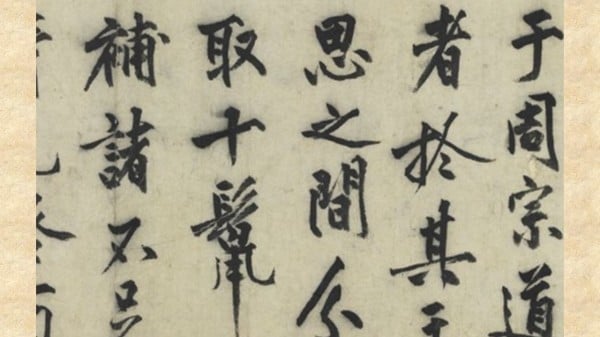 于周宗道
者於其
思之間分
取十鬣
補諸不